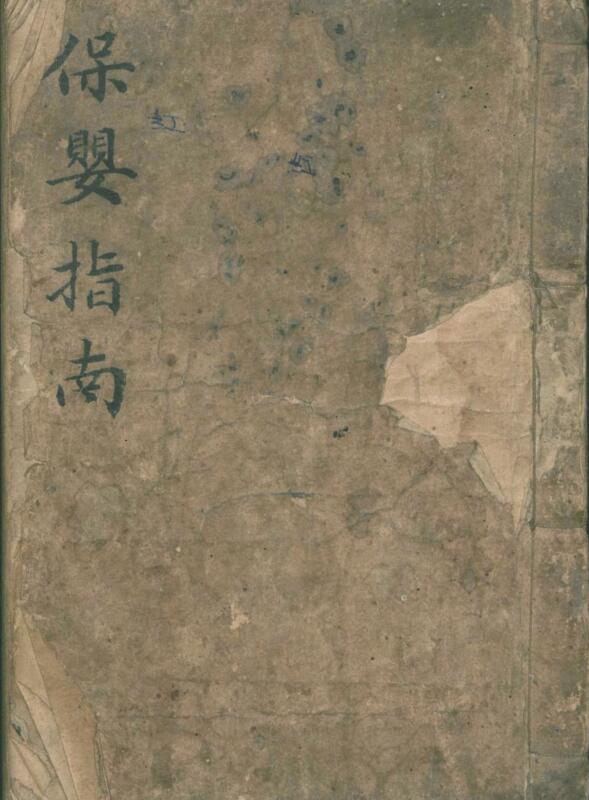 保嬰指南